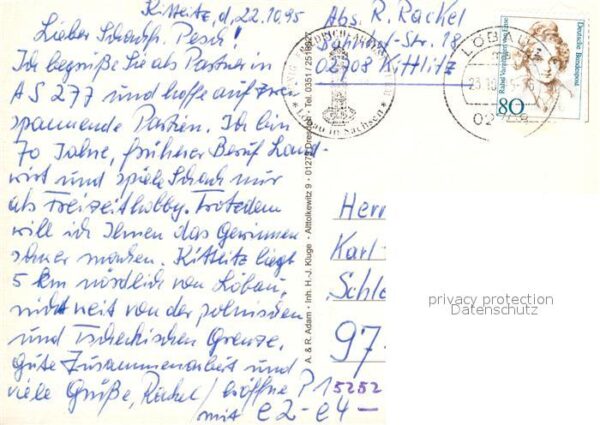 Kittlitz, d. 22.10.95
Lieber Schachfr. Pesch!
Ich begrüße Sie als Partner in
AS 277 und hoffe auf zwei
spannende Partien. Ich bin
70 Jahre, früherer Beruf Land-
wirt und spiele Schach nur
als Freizeithobby. Trotzdem
will ich Ihnen das Gewinnen
schwer machen. Kittlitz liegt
5 km nördlich von Löbau,
nicht weit von der polnischen
und Tschechischen Grenze.
Gute Zusammenarbeit und
viele Grüße, Rackel / eröffne P 1
mit e2-e4 -
5252
Abs. R. Rackel
Bahnhof-Str. 18
02708 Kittlitz
LÖBAU
80
Deutsche Bundespost
Löbau in Sachsen
A. & R. Adam · Inh. H.-J. Kluge · Alttolkewitz 9 · 01279 Dresden · Tel. 0351
Herr
Karl-
Schlo
97-
privacy protection
Datenschutz